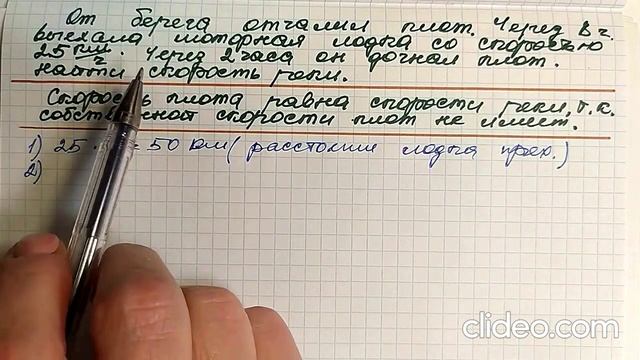 От берега отчалил плот. Через 8 ч.
выехала моторная лодка со скоростью
25 км/ч. Через 2 часа он догнал плот.
Найти скорость реки.
Скорость плота равна скорости реки, т.к.
собственной скорости плот не имеет.
1) 25 = 50 км (расстояние лодка прох.)
2)
clideo.com